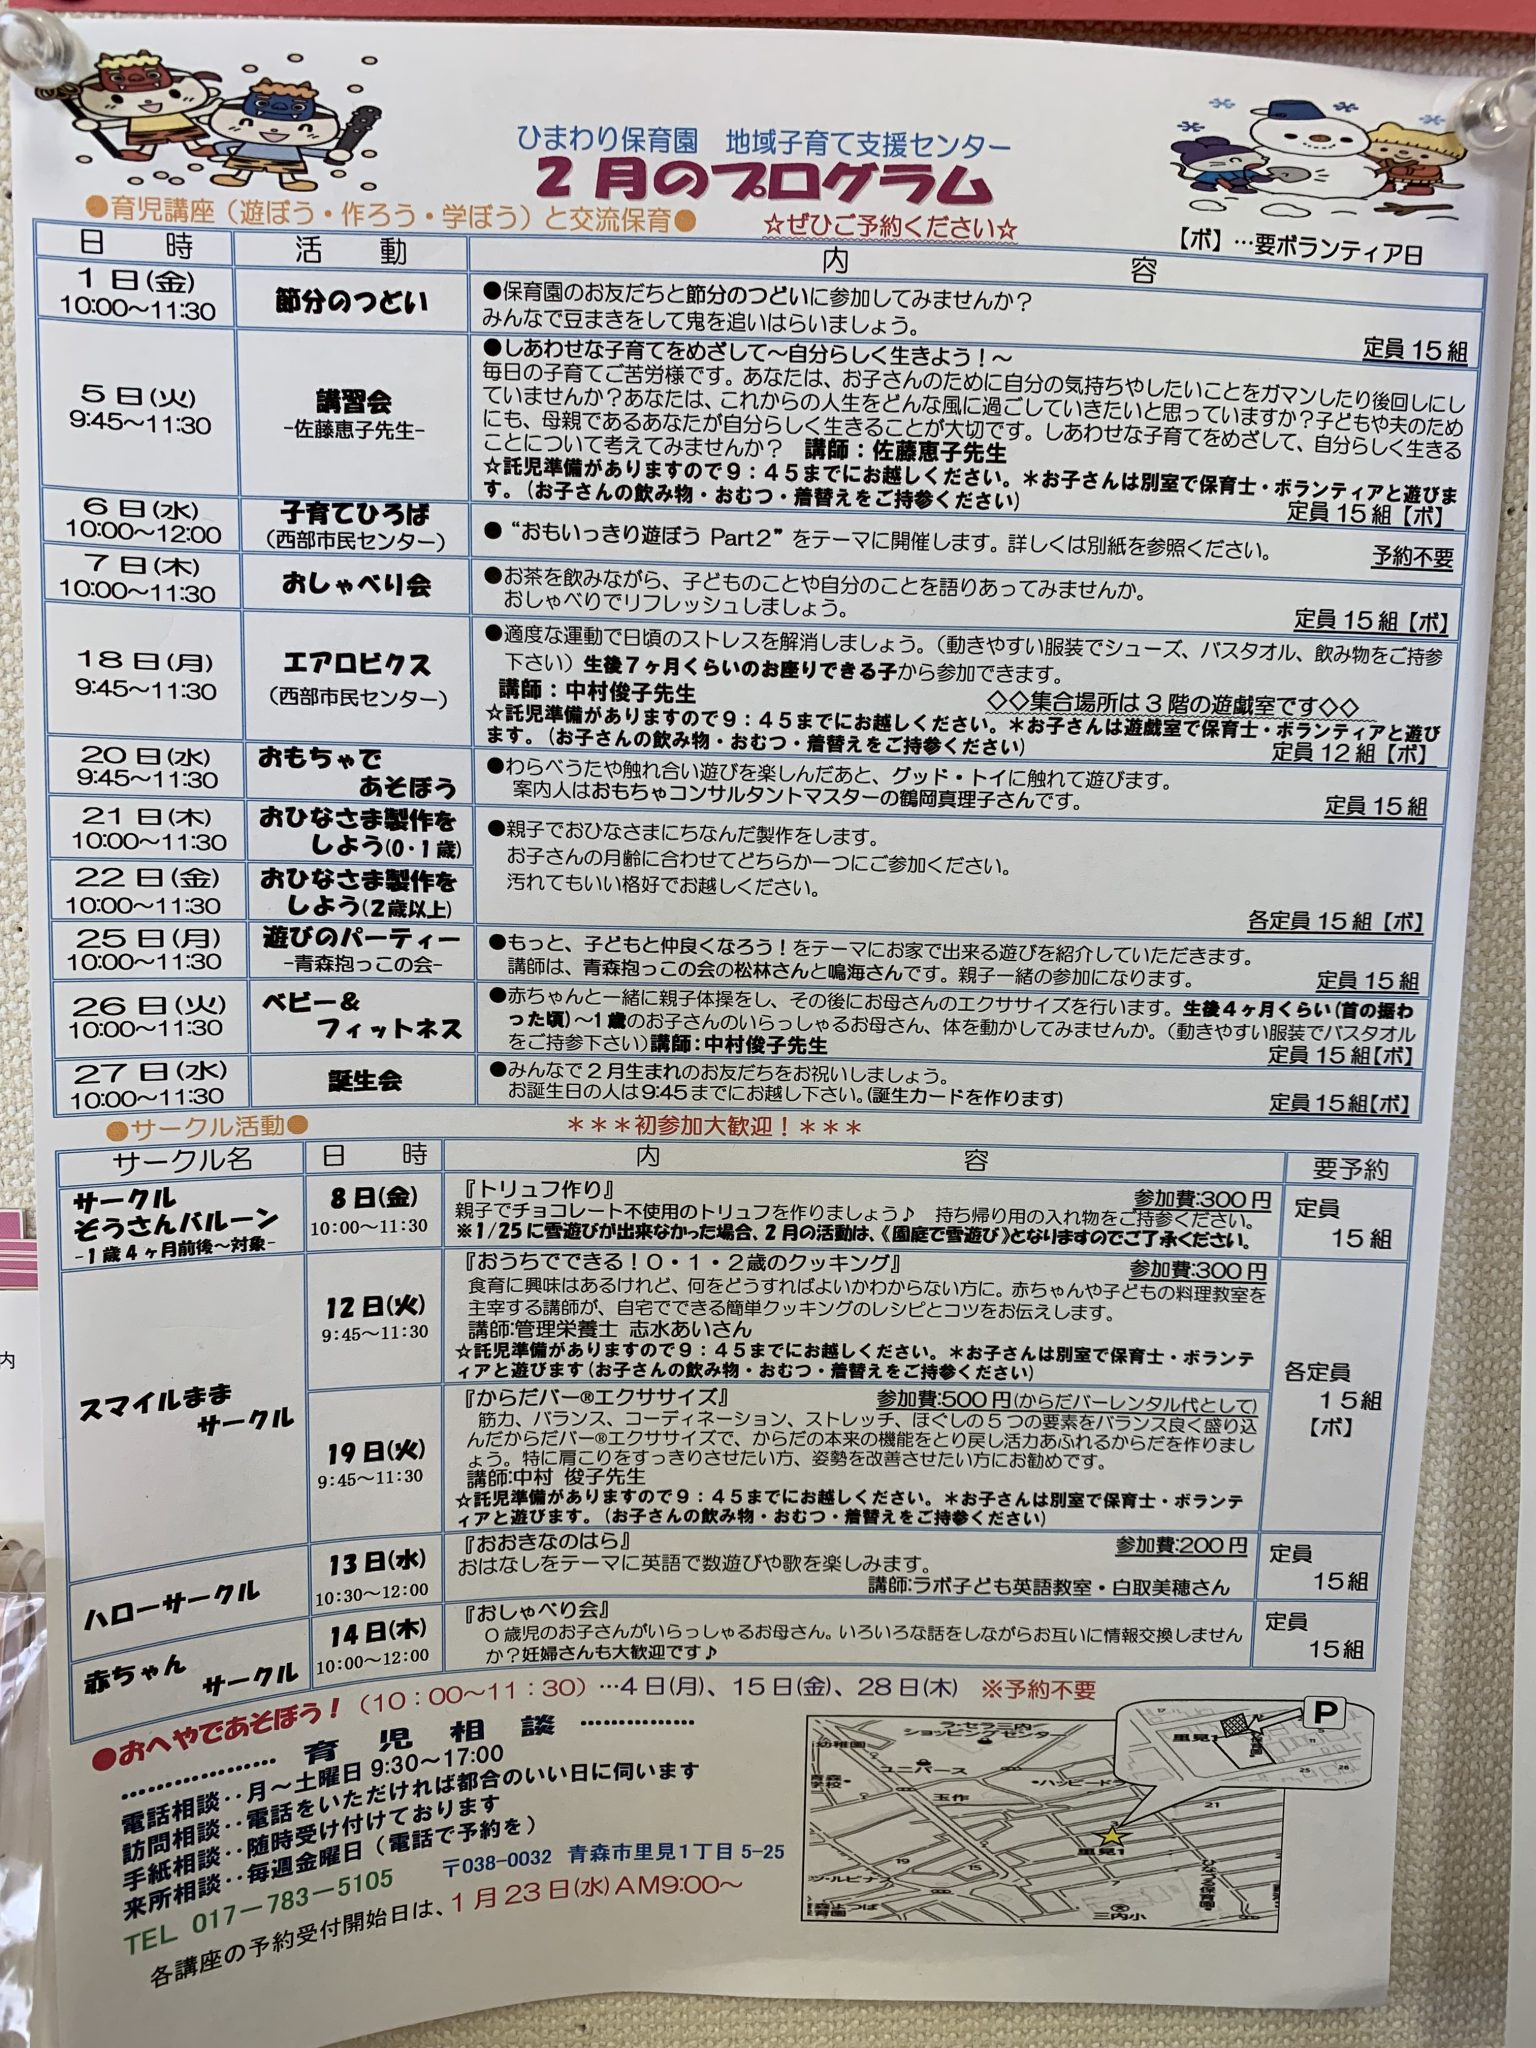 ひまわり保育園　地域子育て支援センター
2月のプログラム
●育児講座（遊ぼう・作ろう・学ぼう）と交流保育●　☆ぜひご予約ください☆
【ボ】…要ボランティア日
日　時　活　動　内　容
1日(金)
10:00～11:30
節分のつどい
●保育園のお友だちと節分のつどいに参加してみませんか？
みんなで豆まきをして鬼を追いはらいましょう。
定員15組
5日(火)
9:45～11:30
講習会
-佐藤恵子先生-
●しあわせな子育てをめざして～自分らしく生きよう！～
毎日の子育てご苦労様です。あなたは、お子さんのために自分の気持ちやしたいことをガマンしたり後回しにし
ていませんか？あなたは、これからの人生をどんな風に過ごしていきたいと思っていますか？子どもや夫のため
にも、母親であるあなたが自分らしく生きることが大切です。しあわせな子育てをめざして、自分らしく生きる
ことについて考えてみませんか？　講師：佐藤恵子先生
☆託児準備がありますので9：45までにお越しください。＊お子さんは別室で保育士・ボランティアと遊びま
す。（お子さんの飲み物・おむつ・着替えをご持参ください）
定員15組【ボ】
6日(水)
10:00～12:00
子育てひろば
（西部市民センター）
●“おもいっきり遊ぼう Part2”をテーマに開催します。詳しくは別紙を参照ください。
予約不要
7日(木)
10:00～11:30
おしゃべり会
●お茶を飲みながら、子どものことや自分のことを語りあってみませんか。
おしゃべりでリフレッシュしましょう。
定員15組【ボ】
18日(月)
9:45～11:30
エアロビクス
（西部市民センター）
●適度な運動で日頃のストレスを解消しましょう。（動きやすい服装でシューズ、バスタオル、飲み物をご持参
下さい）生後7ヶ月くらいのお座りできる子から参加できます。
講師：中村俊子先生　◇◇集合場所は3階の遊戯室です◇◇
☆託児準備がありますので9：45までにお越しください。＊お子さんは遊戯室で保育士・ボランティアと遊び
ます。（お子さんの飲み物・おむつ・着替えをご持参ください）
定員12組【ボ】
20日(水)
9:45～11:30
おもちゃで
あそぼう
●わらべうたや触れ合い遊びを楽しんだあと、グッド・トイに触れて遊びます。
案内人はおもちゃコンサルタントマスターの鶴岡真理子さんです。
定員15組
21日(木)
10:00～11:30
おひなさま製作を
しよう(0・1歳)
22日(金)
10:00～11:30
おひなさま製作を
しよう(2歳以上)
●親子でおひなさまにちなんだ製作をします。
お子さんの月齢に合わせてどちらか一つにご参加ください。
汚れてもいい格好でお越しください。
各定員15組【ボ】
25日(月)
10:00～11:30
遊びのパーティー
-青森抱っこの会-
●もっと、子どもと仲良くなろう！をテーマにお家で出来る遊びを紹介していただきます。
講師は、青森抱っこの会の松林さんと鳴海さんです。親子一緒の参加になります。
定員15組
26日(火)
10:00～11:30
ベビー＆
フィットネス
●赤ちゃんと一緒に親子体操をし、その後にお母さんのエクササイズを行います。生後4ヶ月くらい(首の据わ
った頃)～1歳のお子さんのいらっしゃるお母さん、体を動かしてみませんか。（動きやすい服装でバスタオル
をご持参下さい）講師：中村俊子先生
定員15組【ボ】
27日(水)
10:00～11:30
誕生会
●みんなで2月生まれのお友だちをお祝いしましょう。
お誕生日の人は9:45までにお越し下さい。(誕生カードを作ります)
定員15組【ボ】
●サークル活動●　＊＊＊初参加大歓迎！＊＊＊
サークル名　日　時　内　容　要予約
サークル
ぞうさんバルーン
-1歳4ヶ月前後～対象-
8日(金)
10:00～11:30
『トリュフ作り』　参加費:300円
親子でチョコレート不使用のトリュフを作りましょう♪　持ち帰り用の入れ物をご持参ください。
※1/25に雪遊びが出来なかった場合、2月の活動は、《園庭で雪遊び》となりますのでご了承ください。
定員
15組
スマイルまま
サークル
12日(火)
9:45～11:30
『おうちでできる！0・1・2歳のクッキング』　参加費:300円
食育に興味はあるけれど、何をどうすればよいかわからない方に。赤ちゃんや子どもの料理教室を
主宰する講師が、自宅でできる簡単クッキングのレシピとコツをお伝えします。
講師:管理栄養士　志水あいさん
☆託児準備がありますので9：45までにお越しください。＊お子さんは別室で保育士・ボランテ
ィアと遊びます（お子さんの飲み物・おむつ・着替えをご持参ください）
各定員
15組
【ボ】
19日(火)
9:45～11:30
『からだバー®エクササイズ』　参加費:500円(からだバーレンタル代として)
筋力、バランス、コーディネーション、ストレッチ、ほぐしの5つの要素をバランス良く盛り込
んだからだバー®エクササイズで、からだの本来の機能をとり戻し活力あふれるからだを作りまし
ょう。特に肩こりをすっきりさせたい方、姿勢を改善させたい方にお勧めです。
講師:中村　俊子先生
☆託児準備がありますので9：45までにお越しください。＊お子さんは別室で保育士・ボランテ
ィアと遊びます。（お子さんの飲み物・おむつ・着替えをご持参ください）
ハローサークル
13日(水)
10:30～12:00
『おおきなのはら』　参加費:200円
おはなしをテーマに英語で数遊びや歌を楽しみます。
講師:ラボ子ども英語教室・白取美穂さん
定員
15組
赤ちゃん
サークル
14日(木)
10:00～12:00
『おしゃべり会』
0歳児のお子さんがいらっしゃるお母さん。いろいろな話をしながらお互いに情報交換しません
か？妊婦さんも大歓迎です♪
定員
15組
●おへやであそぼう！（10：00～11：30）…4日(月)、15日(金)、28日(木)　※予約不要
………………育児相談……………
電話相談‥月～土曜日 9:30～17:00
訪問相談‥電話をいただければ都合のいい日に伺います
手紙相談‥随時受け付けております
来所相談‥毎週金曜日（電話で予約を）
TEL 017－783－5105　〒038-0032　青森市里見1丁目5-25
各講座の予約受付開始日は、1月23日(水)AM9:00～
P
里見1
ラ・セラ三内
ショッピングセンター
幼稚園
ユニバース
玉作
里見1
21
19
15
三内小
内